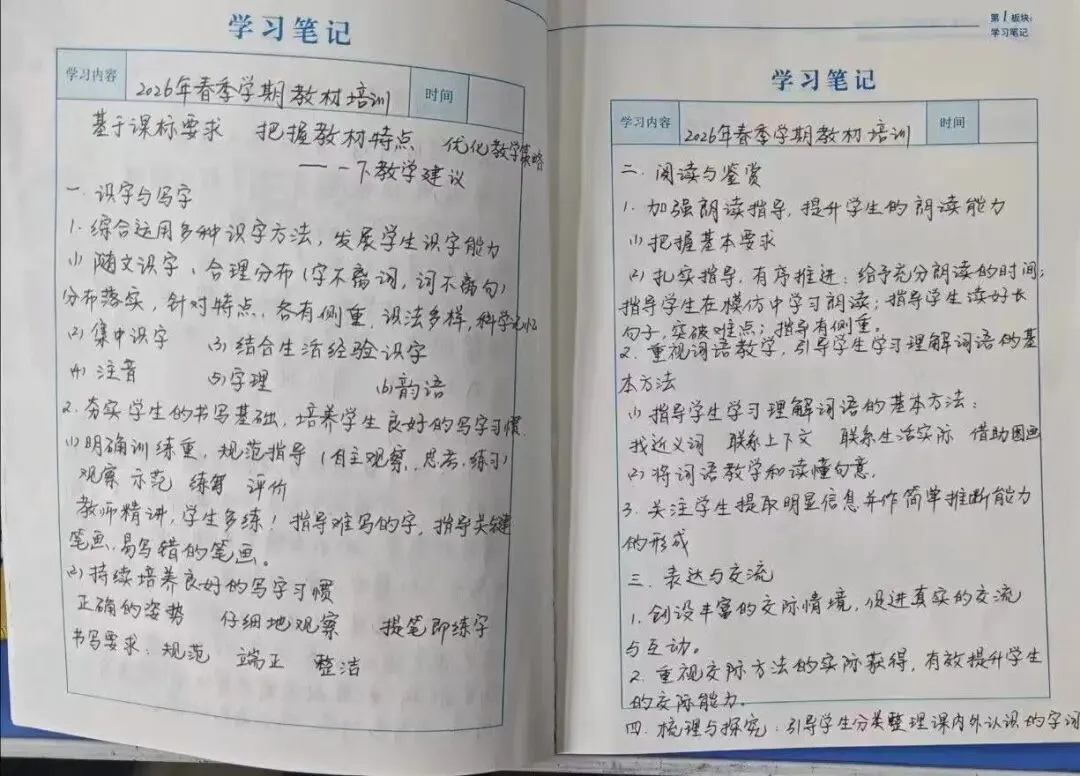 学习笔记
学习内容 2026年春季学期教材培训 时间
基于课标要求 把握教材特点 优化教学策略
——一下教学建议
一. 识字与写字
1. 综合运用多种识字方法, 发展学生识字能力
(1) 随文识字、合理分布(字不离词, 词不离句)
分布落实, 针对特点, 各有侧重, 识法多样, 科学识记
(2) 集中识字 (3) 结合生活经验识字
(4) 注音 (5) 字理 (6) 韵语
2. 夯实学生的书写基础, 培养学生良好的写字习惯.
(1) 明确训练重, 规范指导 (自主观察、思考、练习)
观察 示范 练写 评价
教师精讲, 学生多练! 指导难写的字, 指导关键
笔画、易写错的笔画。
(2) 持续培养良好的写字习惯
正确的姿势 仔细地观察 提笔即练字
书写要求: 规范 端正 整洁
第1板块:
学习笔记
学习笔记
学习内容 2026年春季学期教材培训 时间
二. 阅读与鉴赏
1. 加强朗读指导, 提升学生的朗读能力
(1) 把握基本要求
(2) 扎实指导, 有序推进: 给予充分朗读的时间;
指导学生在模仿中学习朗读; 指导学生读好长
句子, 突破难点; 指导有侧重。
2. 重视词语教学, 引导学生学习理解词语的基
本方法
(1) 指导学生学习理解词语的基本方法:
找近义词 联系上下文 联系生活实际 借助图画
(2) 将词语教学和读懂句意.
3. 关注学生提取明显信息并作简单推断能力
的形成
三. 表达与交流
1. 创设丰富的交际情境, 促进真实的交流
与互动。
2. 重视交际方法的实际获得, 有效提升学生
的交际能力.
四. 梳理与探究: 引导学生分类整理课内外认识的字词